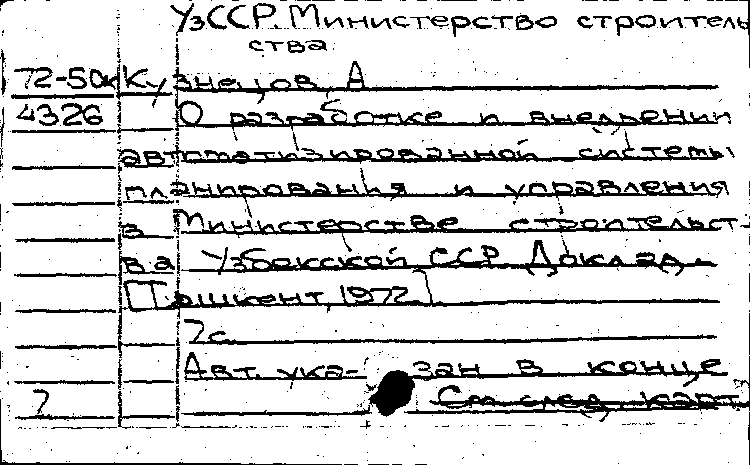 УзССР. Министерство строитель
ства
72-50к Кузнецов, А
4326 О разработке и внедрении
автоматизированной системы
планирования и управления
в Министерстве строительст-
ва Узбекской ССР. Доклад.
[Ташкент, 1972]
7с.
Авт. ука- зан в конце
7 См след. карт.